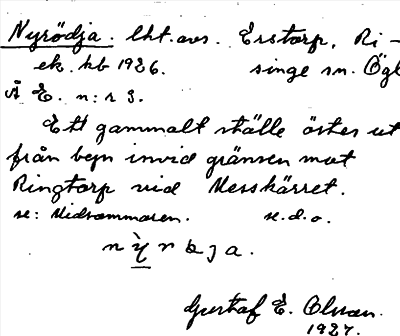 Nyrödja. lht. avs. Erstorp. Ri-
ek. kb 1926. singe sn. Ögl
Å E. n:r 3.
Ett gammalt ställe öster ut
från byn invid gränsen mot
Ringtorp vid Messkärret.
se: Midsommaren. se. d. o.
Gustaf E. Olsson.
1927.